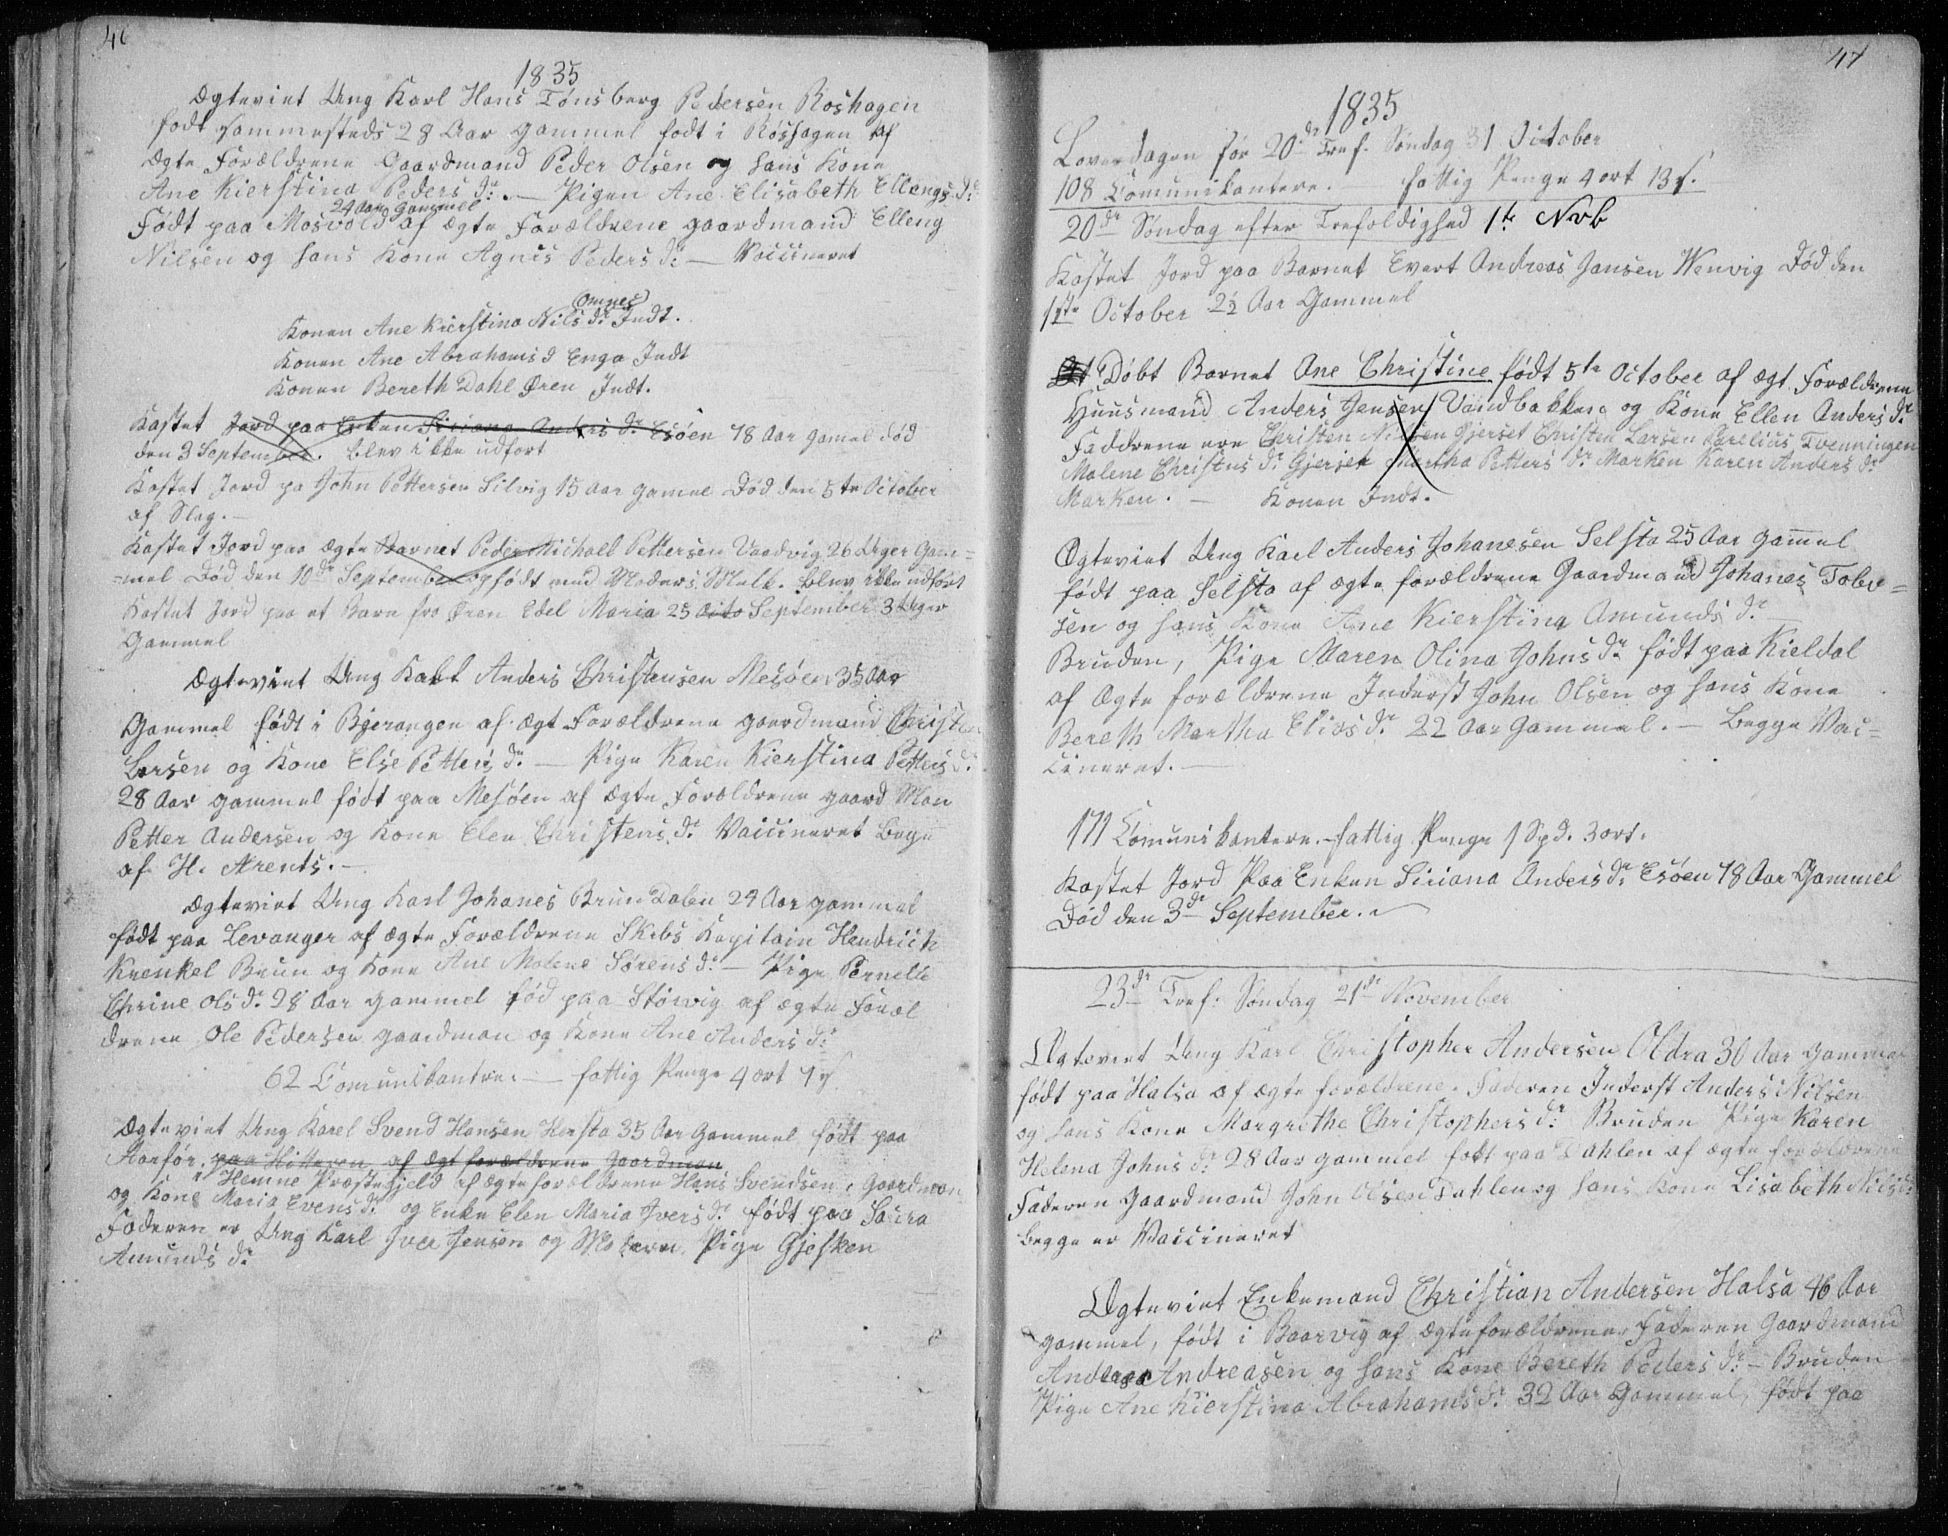 46
1835
Ægteviet Ung Karl Hans Tønsberg Pedersen Roshagen
født sammesteds 28 Aar gammel født i Røshagen af
Ægte Forældrene Gaardmand Peder Olsen og hans Kone
Ane Kierstina Peders dr. — Pigen Ane Elisabeth Ellengs dr
24 Aar Gammel
Født paa Mosvold af Ægte Forældrene gaardmand Elleng
Nilsen og hans Kone Agnis Peders dr — Vaccineret
Omnes
Konen Ane Kierstina Nils dr Indt.
Konen Ane Abrahams d Enga Indt
Konen Bereth Dahl Øren Indt.
Kastet Jord paa Enken Siriana Anders dr Esøen 78 Aar gamel død
den 3 September. blev ikke udført
Kastet Jord pa John Pettersen Silvig 15 Aar gamel Død den 5te October
af Slag. —
Kastet Jord paa ægte Barnet Peder Michael Pettersen Vaadvig 26 Uger Gam=
=mel Død den 10de September opfødt med Moders Melk. blev ikke udført
Kastet Jord paa et Barn fra Øren Edel Maria 25 Octo September 3 Uger
Gammel
Ægteviet Ung Karl Anders Christensen Mesøen 35 Aar
Gammel født i Bjerangen af Ægt Forældrene gaardmand Christen
Larsen og Kone Else Petters dr — Pige Karen Kierstina Petters dr
28 Aar gammel født paa Mesøen af Ægte Forældrene gaard Man
Petter Andersen og Kone Elen Christens dr Vaccineret Begge
af H. Arents. —
Ægteviet Ung Karl Johanes Brun Dalen 24 Aar gammel
født paa Levanger af ægte Forældrene Skibs Kapitain Hendrich
Krenkel Brun og Kone Ane Malene Sørens dr — Pige Pernelle
Chrine Ols dr 28 Aar gammel fød paa Støvvig af ægte Foræl
drene Ole Pedersen gaardman og Kone Ane Anders dr
62 Comunikantere — fattig Penge 4 ort
Ægteviet Ung Karel Svend Hansen Hersta 35 Aar Gammel født paa
paa Hitteren af Ægt forældrene Gaardman
i Hemne Præstegjeld af ægte forældrene Hans Svendsen, Gaardman
og Kone Maria Evens dr og Enke Elen Maria Ivers dr født paa
Faderen er Ung Karl Iver Jensen og Moderen Pige Gjesken
Amunds dr
47
1835
Løverdagen før 20de Tref. Søndag 31 October
108 Comunikantere. — fattig Penge 4 ort 13 s.
20de Søndag efter Trefoldighed 1te Nvb
Kastet Jord paa Barnet Evert Andreas Jansen Wenvig Død den
1ste October 2½ Aar Gammel
Døbt Barnet Ane Christine født 5te October af ægt. Forældrene
Huusmand Anders Jensen Vandbakken og Kone Ellen Anders dr
Faddrene ere Christen Nielsen Gjerset Christen Larsen Parelius Tvenningen
Malene Christens dr Gjerset Martha Petters dr Marken Karen Anders dr
Marken. — Konen Indt.
Ægteviet Ung Karl Anders Johanesen Selsta 25 Aar gammel
født paa Selsta af ægte forældrene Gaardmand Johanes Tobia=
sen og hans Kone Ane Kierstina Amunds dr
Bruden, Pige Maren Olina Johns dr født paa Kieldal
af Ægte forældrene Inderst John Olsen og hans Kone
Bereth Martha Elias dr 22 Aar Gammel. — Begge Vac=
cineret. —
171 Comunikantere. — fattig Penge 1 Spd. 3 ort.
Kastet Jord Paa Enken Siriana Anders dr Esøen 78 Aar Gammel
Død den 3de September.
23de Tref: Søndag 21de November
Ægteviet Ung Karl Christopher Andersen Oldra 30 Aar gammel
født paa Halsa af ægte forældrene. Faderen Inderst Anders Nilsen
og hans Kone Margrethe Christophers dr Bruden Pige Karen
Helena Johns dr 28 Aar gammel født paa Dahlen af ægte forældrene
Faderen Gaardmand John Olsen Dahlen og hans Kone Lisabeth Niels dr
begge er Vaccineret
Ægteviet Enkemand Christian Andersen Halsa 46 Aar
gammel, født i Baarvig af Ægte forældrene. Faderen Gaardmand
Anders Andreasen og hans Kone Bereth Peders dr — Bruden
Pige Ane Kierstina Abrahams dr 32 Aar Gammel, født paa